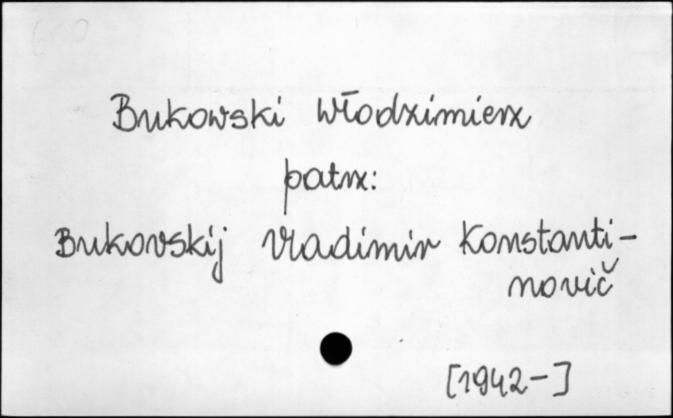 Bukowski Włodzimierz
patrz:
Bukovskij Vladimir Konstanti-
novič
[1942- ]